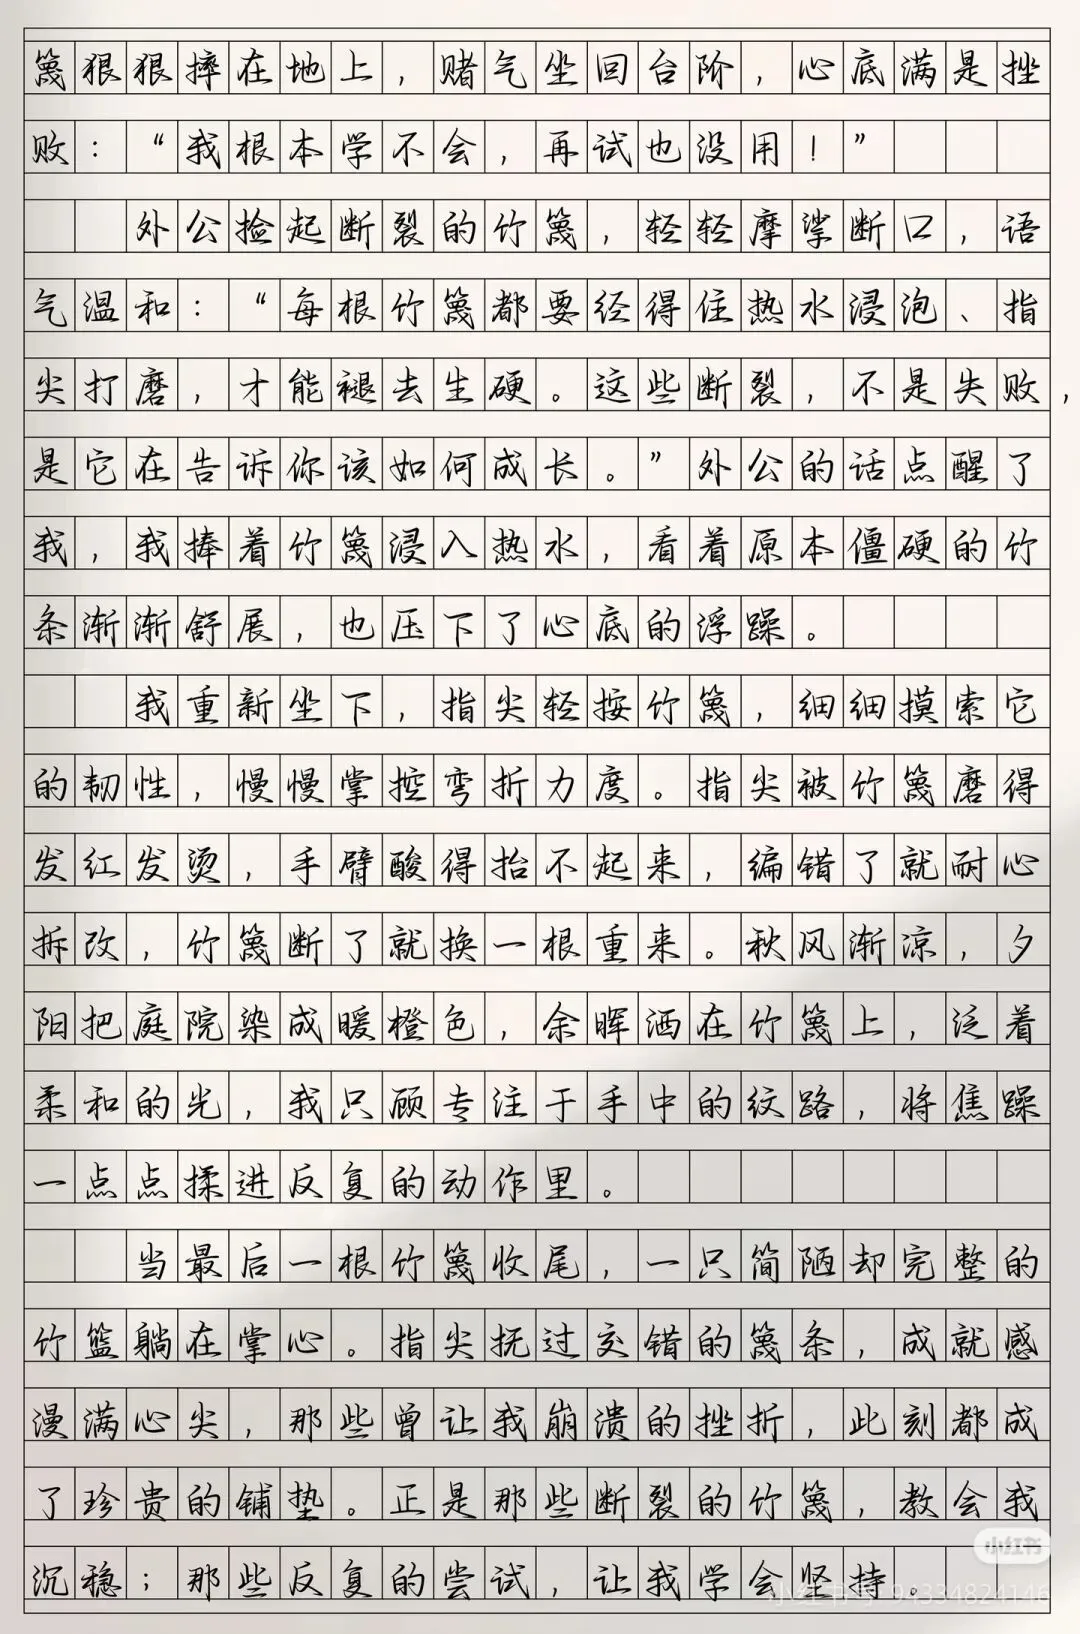 篾狠狠摔在地上，赌气坐回台阶，心底满是挫
败：“我根本学不会，再试也没用！”
外公捡起断裂的竹篾，轻轻摩挲断口，语
气温和：“每根竹篾都要经得住热水浸泡、指
尖打磨，才能褪去生硬。这些断裂，不是失败，
是它在告诉你该如何成长。”外公的话点醒了
我，我捧着竹篾浸入热水，看着原本僵硬的竹
条渐渐舒展，也压下了心底的浮躁。
我重新坐下，指尖轻按竹篾，细细摸索它
的韧性，慢慢掌控弯折力度。指尖被竹篾磨得
发红发烫，手臂酸得抬不起来，编错了就耐心
拆改，竹篾断了就换一根重来。秋风渐凉，夕
阳把庭院染成暖橙色，余晖洒在竹篾上，泛着
柔和的光，我只顾专注于手中的纹路，将焦躁
一点点揉进反复的动作里。
当最后一根竹篾收尾，一只简陋却完整的
竹篮躺在掌心。指尖抚过交错的篾条，成就感
漫满心尖，那些曾让我崩溃的挫折，此刻都成
了珍贵的铺垫。正是那些断裂的竹篾，教会我
沉稳；那些反复的尝试，让我学会坚持。
小红书
小红书号 94334824146